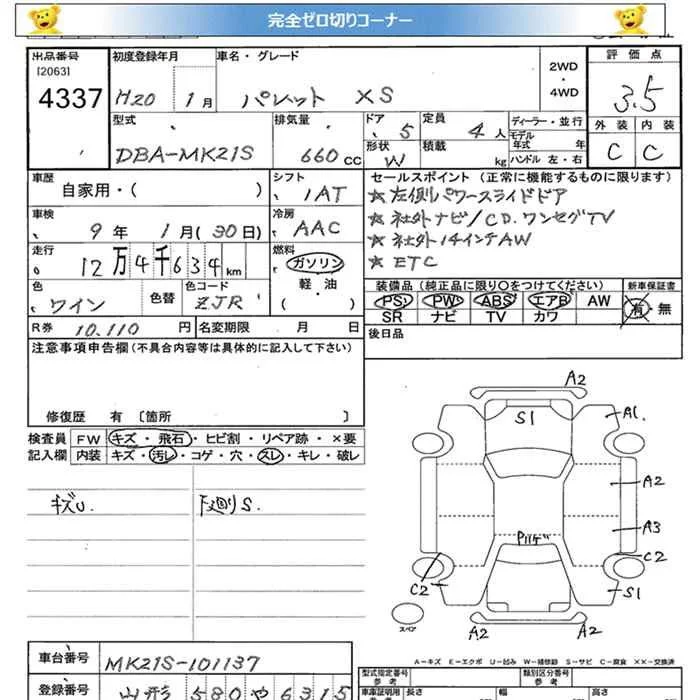 完全ゼロ切りコーナー
出品番号 初度登録年月 車名・グレード 2WD・4WD 評価点
[2063]
4337 H20 1月 パレット XS 3.5
型式 排気量 ドア 5 定員 4人 ディーラー・並行 外装 内装
モデル年式 年
DBA-MK21S 660CC 形状 W 積載 kg ハンドル 左・右 C C
車歴 自家用・( ) シフト 1AT セールスポイント (正常に機能するものに限ります)
☆左側パワースライドドア
車検 9年 1月(30日) 冷房 AAC ☆社外ナビ/CD.ワンセグTV
☆社外14インチAW
走行 12万4千634km 燃料 ガソリン 軽・油 ( ) ☆ETC
色 ワイン 色替 色コード ZJR 装備品 (純正品に限り〇をつけてください) 新車保証書
PS PW ABS エアB AW 有・無
SR ナビ TV カワ
R券 10.110円 名変期限 月 日 後日品
注意事項申告欄(不具合内容等は具体的に記入して下さい)
修復歴 有 〔箇所 〕
検査員 FW キズ・飛石・ヒビ割・リペア跡・×要
記入欄 内装 キズ・汚レ・コゲ・穴・スレ・キレ・破レ
キズU. 下廻りS.
A2
S1 A1.
A2
A3
Pルゲ
C2 C2
S1
スペア A2 A2
A-キズ E-エクボ U-凹み W-補修跡 S-サビ C-腐食 XX-交換済
車台番号 MK21S-101137
型式指定番号 参考 類別区分番号 参考
登録番号 山形 580 や 6315
車庫証明用 参考 長さ 幅 高さ